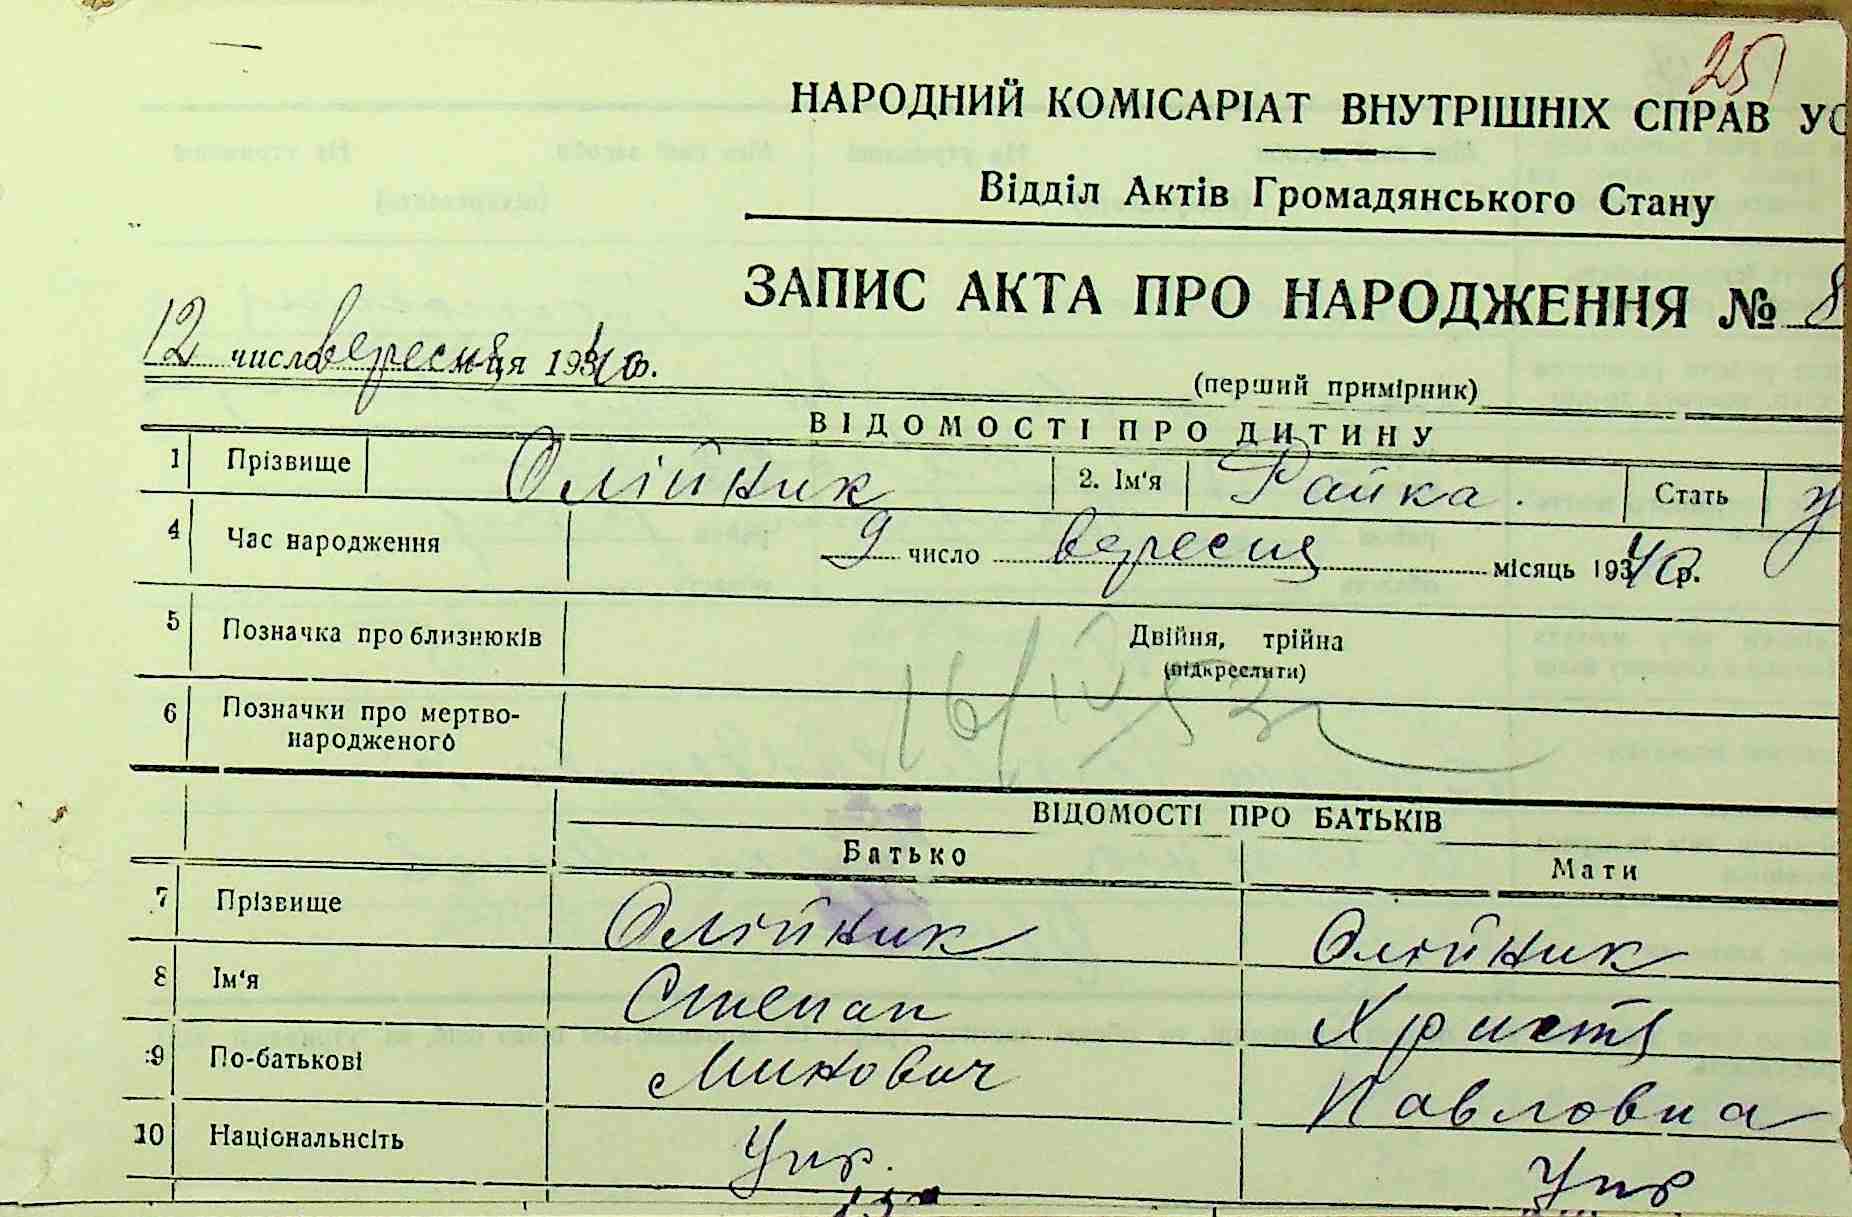 25
НАРОДНИЙ КОМІСАРІАТ ВНУТРІШНІХ СПРАВ УС
Відділ Актів Громадянського Стану
ЗАПИС АКТА ПРО НАРОДЖЕННЯ № 8
12 число вересня м-ця 1940 р.
(перший примірник)
ВІДОМОСТІ ПРО ДИТИНУ
1 Прізвище Олійник 2. Ім'я Райка. Стать
4 Час народження 9 число вересня місяць 1940 р.
5 Позначка про близнюків Двійня, трійна
(підкреслити)
16/IV 52
6 Позначки про мертво-
народженого
ВІДОМОСТІ ПРО БАТЬКІВ
Батько Мати
7 Прізвище Олійник Олійник
8 Ім'я Степан Христя
9 По-батькові Минович Павловна
10 Національнсіть Укр. Укр